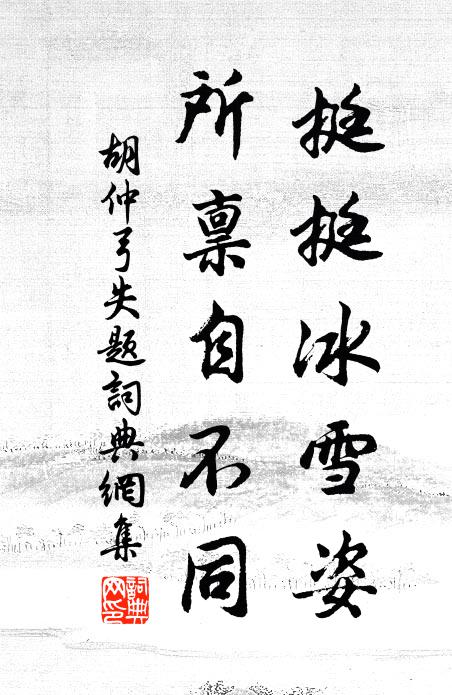 挺挺冰雪姿
所禀自不同
胡仲弓失題詞典網集
詞典网印